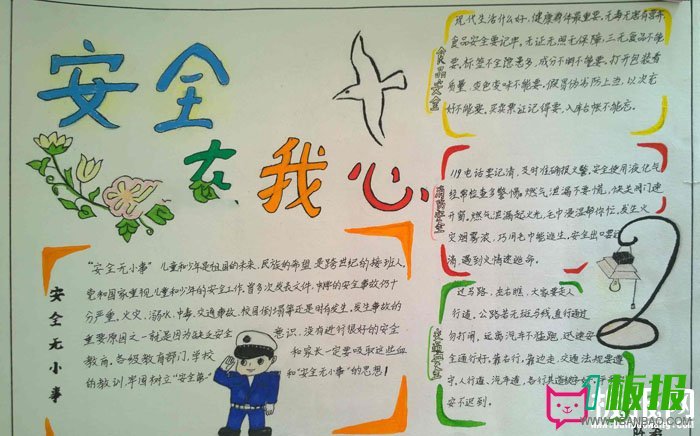 安全
在我心
食品安全
现代生活什么好,健康身体最重要,无毒无害有营养,
食品安全要记牢。无证无照无保障,三无食品不能
要,标签不全隐患多,成分不明不能要。打开包装看
质量,变色变味不能要,假冒伪劣防上当,以次充
好不能要。买卖票证记得要,入库台帐不能忘。
消防安全
119电话要记清,及时准确报火警,安全使用液化气
经常检查多警惕。燃气泄漏不要慌,快关阀门速
开窗。燃气泄漏起火光,毛巾浸湿帮你忙,发生火
灾烟雾浓,巧用毛巾能逃生。安全出口要记
清,遇到火情速逃命。
交通安全
过马路,左右瞧,大家要走人
行道,公路若无斑马线,直行通过
勿打闹。远离汽车不猛跑,迟速安
全通行好。靠右行,靠边走,交通法规要遵
守,人行道,汽车道,各行其道
安不迟到。
安全无小事
“安全无小事”儿童和少年是祖国的未来,民族的希望,是跨世纪的接班人。
党和国家重视儿童和少年的安全工作,曾多次发表文件,中学的安全事故仍十
分严重,火灾、溺水、中毒、交通事故、校园倒塌等还是时有发生。发生事故的
重要原因之一就是因为缺乏安全意识,没有进行很好的安全
教育。各级教育部门,学校和家长一定要吸取这些血
的教训,牢固树立“安全第一”和“安全无小事”的思想!
板报
WWW.1BANBAO.COM